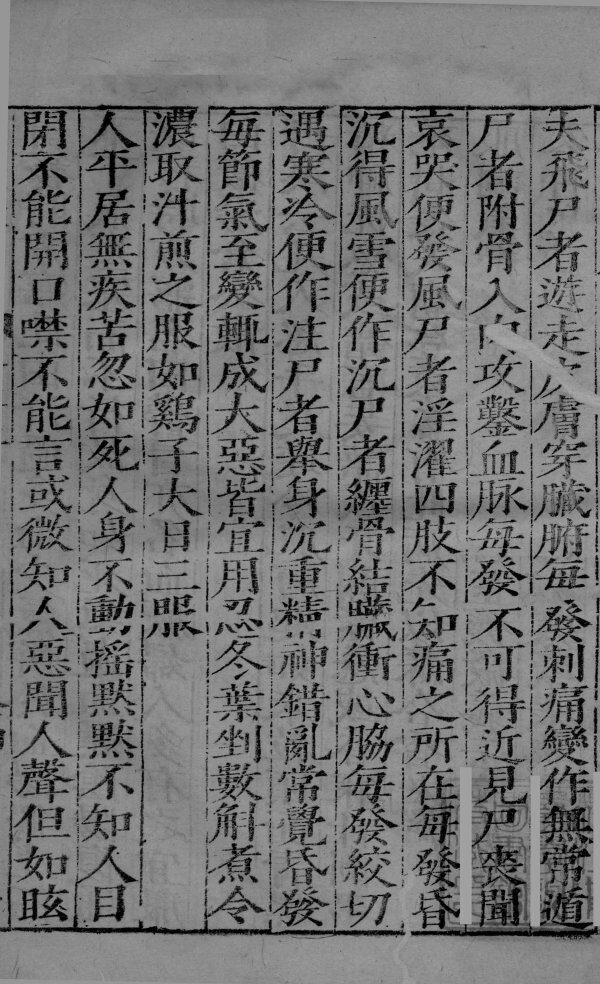 夫飛尸者遊走皮膚穿臟腑每發刺痛變作無常遁
尸者附骨入肉攻鑿血脉每發不可得近見尸喪聞
哀哭便發風尸者淫濯四肢不知痛之所在每發昏
沉得風雪便作沉尸者纏骨結臟衝心脇每發絞切
遇寒冷便作注尸者舉身沉重精神錯亂常覺昏發
每節氣至變輙成大惡皆宜用忍冬葉剉數斛煮令
濃取汁煎之服如鷄子大日三服
人平居無疾苦忽如死人身不動揺黙黙不知人目
閉不能開口噤不能言或微知人惡聞人聲但如眩